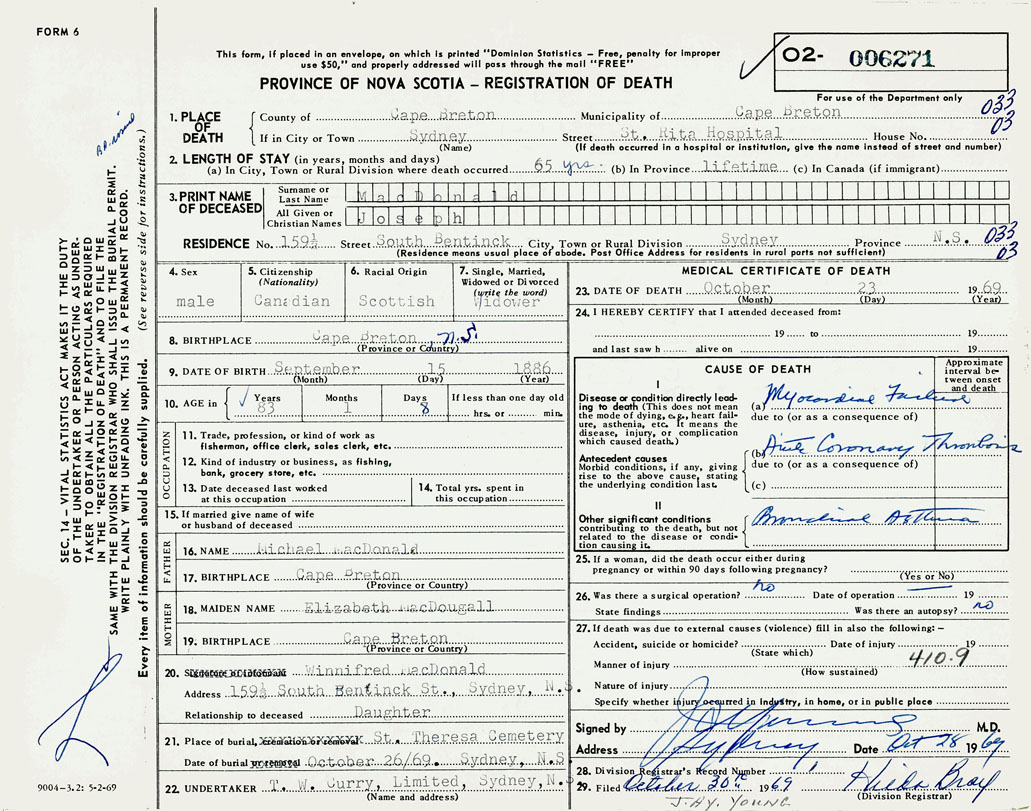 FORM 6
This form, if placed in an envelope, on which is printed "Dominion Statistics – Free, penalty for improper
use $50," and properly addressed will pass through the mail "FREE"
PROVINCE OF NOVA SCOTIA – REGISTRATION OF DEATH
O2- 006271
For use of the Department only
033
03
1. PLACE OF DEATH
County of Cape Breton Municipality of Cape Breton
If in City or Town Sydney Street St. Rita Hospital House No.
(Name) (If death occurred in a hospital or institution, give the name instead of street and number)
2. LENGTH OF STAY (in years, months and days)
(a) In City, Town or Rural Division where death occurred 65 yrs. (b) In Province lifetime (c) In Canada (if immigrant)
3. PRINT NAME OF DECEASED
Surname or Last Name MacDonald
All Given or Christian Names Joseph
RESIDENCE No. 159½ Street South Bentinck City, Town or Rural Division Sydney Province N.S. 033
(Residence means usual place of abode. Post Office Address for residents in rural parts not sufficient) 03
4. Sex
male
5. Citizenship
(Nationality)
Canadian
6. Racial Origin
Scottish
7. Single, Married,
Widowed or Divorced
(write the word)
Widower
8. BIRTHPLACE Cape Breton N.S.
(Province or Country)
9. DATE OF BIRTH September 15 1886
(Month) (Day) (Year)
10. AGE in Years Months Days If less than one day old
83 1 8 hrs. or min.
OCCUPATION
11. Trade, profession, or kind of work as
fisherman, office clerk, sales clerk, etc.
12. Kind of industry or business, as fishing,
bank, grocery store, etc.
13. Date deceased last worked
at this occupation
14. Total yrs. spent in
this occupation
15. If married give name of wife
or husband of deceased
FATHER
16. NAME Michael MacDonald
17. BIRTHPLACE Cape Breton
(Province or Country)
MOTHER
18. MAIDEN NAME Elizabeth MacDougall
19. BIRTHPLACE Cape Breton
(Province or Country)
20. Signature of informant Winnifred MacDonald
Address 159½ South Bentinck St., Sydney, N.S.
Relationship to deceased Daughter
21. Place of burial, cremation or removal St. Theresa Cemetery
Date of burial or removal October 26/69. Sydney, N.S.
22. UNDERTAKER T. W. Curry, Limited, Sydney, N.S.
(Name and address)
MEDICAL CERTIFICATE OF DEATH
23. DATE OF DEATH October 23 1969
(Month) (Day) (Year)
24. I HEREBY CERTIFY that I attended deceased from:
19 to 19
and last saw h alive on 19
CAUSE OF DEATH
Approximate
interval be-
tween onset
and death
I
Disease or condition directly lead-
ing to death (This does not mean
the mode of dying, e.g., heart fail-
ure, asthenia, etc. It means the
disease, injury, or complication
which caused death.)
(a) Myocardial Failure
due to (or as a consequence of)
Antecedent causes
Morbid conditions, if any, giving
rise to the above cause, stating
the underlying condition last.
(b) Acute Coronary Thrombosis
due to (or as a consequence of)
(c)
II
Other significant conditions
contributing to the death, but not
related to the disease or condi-
tion causing it.
Bronchial Asthma
25. If a woman, did the death occur either during
pregnancy or within 90 days following pregnancy?
(Yes or No)
26. Was there a surgical operation? no Date of operation 19
State findings Was there an autopsy? no
27. If death was due to external causes (violence) fill in also the following: –
Accident, suicide or homicide? Date of injury 19
(State which)
410.9
Manner of injury
(How sustained)
Nature of injury
Specify whether injury occurred in industry, in home, or in public place
Signed by M.D.
Address Sydney Date Oct 28 1969
28. Division Registrar's Record Number
29. Filed October 30th 1969 Hilda Bray
(Division Registrar)
J. HY. YOUNG
SEC. 14 – VITAL STATISTICS ACT MAKES IT THE DUTY
OF THE UNDERTAKER OR PERSON ACTING AS UNDER-
TAKER TO OBTAIN ALL THE PARTICULARS REQUIRED
IN THE "REGISTRATION OF DEATH" AND TO FILE THE
SAME WITH THE DIVISION REGISTRAR WHO SHALL ISSUE THE BURIAL PERMIT.
WRITE PLAINLY WITH UNFADING INK. THIS IS A PERMANENT RECORD.
Every item of information should be carefully supplied. (See reverse side for instructions.)
9004–3.2: 5-2-69